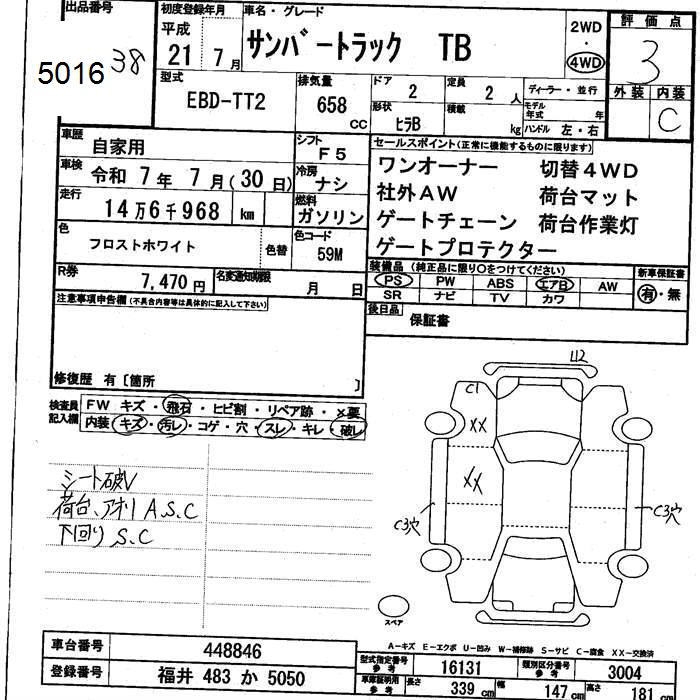 出品番号
5016
38
初度登録年月
平成
21 7月
車名・グレード
サンバートラック TB
2WD
・
4WD
評価点
3
外装 内装
C
型式
EBD-TT2
排気量
658
CC
ドア
2
形状
ヒラB
定員
2 人
積載
kg
ディーラー・並行
モデル年式 年
ハンドル 左・右
車歴
自家用
シフト
F5
車検
令和 7年 7月(30日)
冷房
ナシ
走行
14万6千968 km
燃料
ガソリン
色
フロストホワイト
色替
色コード
59M
R券
7,470 円
名変通知期限
月 日
セールスポイント(正常に機能するものに限ります)
ワンオーナー 切替4WD
社外AW 荷台マット
ゲートチェーン 荷台作業灯
ゲートプロテクター
装備品(純正品に限り○をつけてください)
PS PW ABS エアB AW
SR ナビ TV カワ
新車保証書
有・無
後日品
保証書
注意事項申告欄(不具合内容等は具体的に記入して下さい)
修復歴 有〔箇所 〕
検査員
記入欄
FW キズ・飛石・ヒビ割・リペア跡・×要
内装 キズ・汚レ・コゲ・穴・スレ・キレ・破レ
シート破レ
荷台、アオリ A.S.C
下回り S.C
U2
C1
XX
XX
C3穴
C3穴
スペア
A-キズ E-エクボ U-凹み W-補修跡 S-サビ C-腐食 XX-交換済
車台番号
448846
登録番号
福井 483 か 5050
型式指定番号
参考
16131
類別区分番号
参考
3004
車庫証明用
参考
長さ
339 cm
幅
147 cm
高さ
181 cm